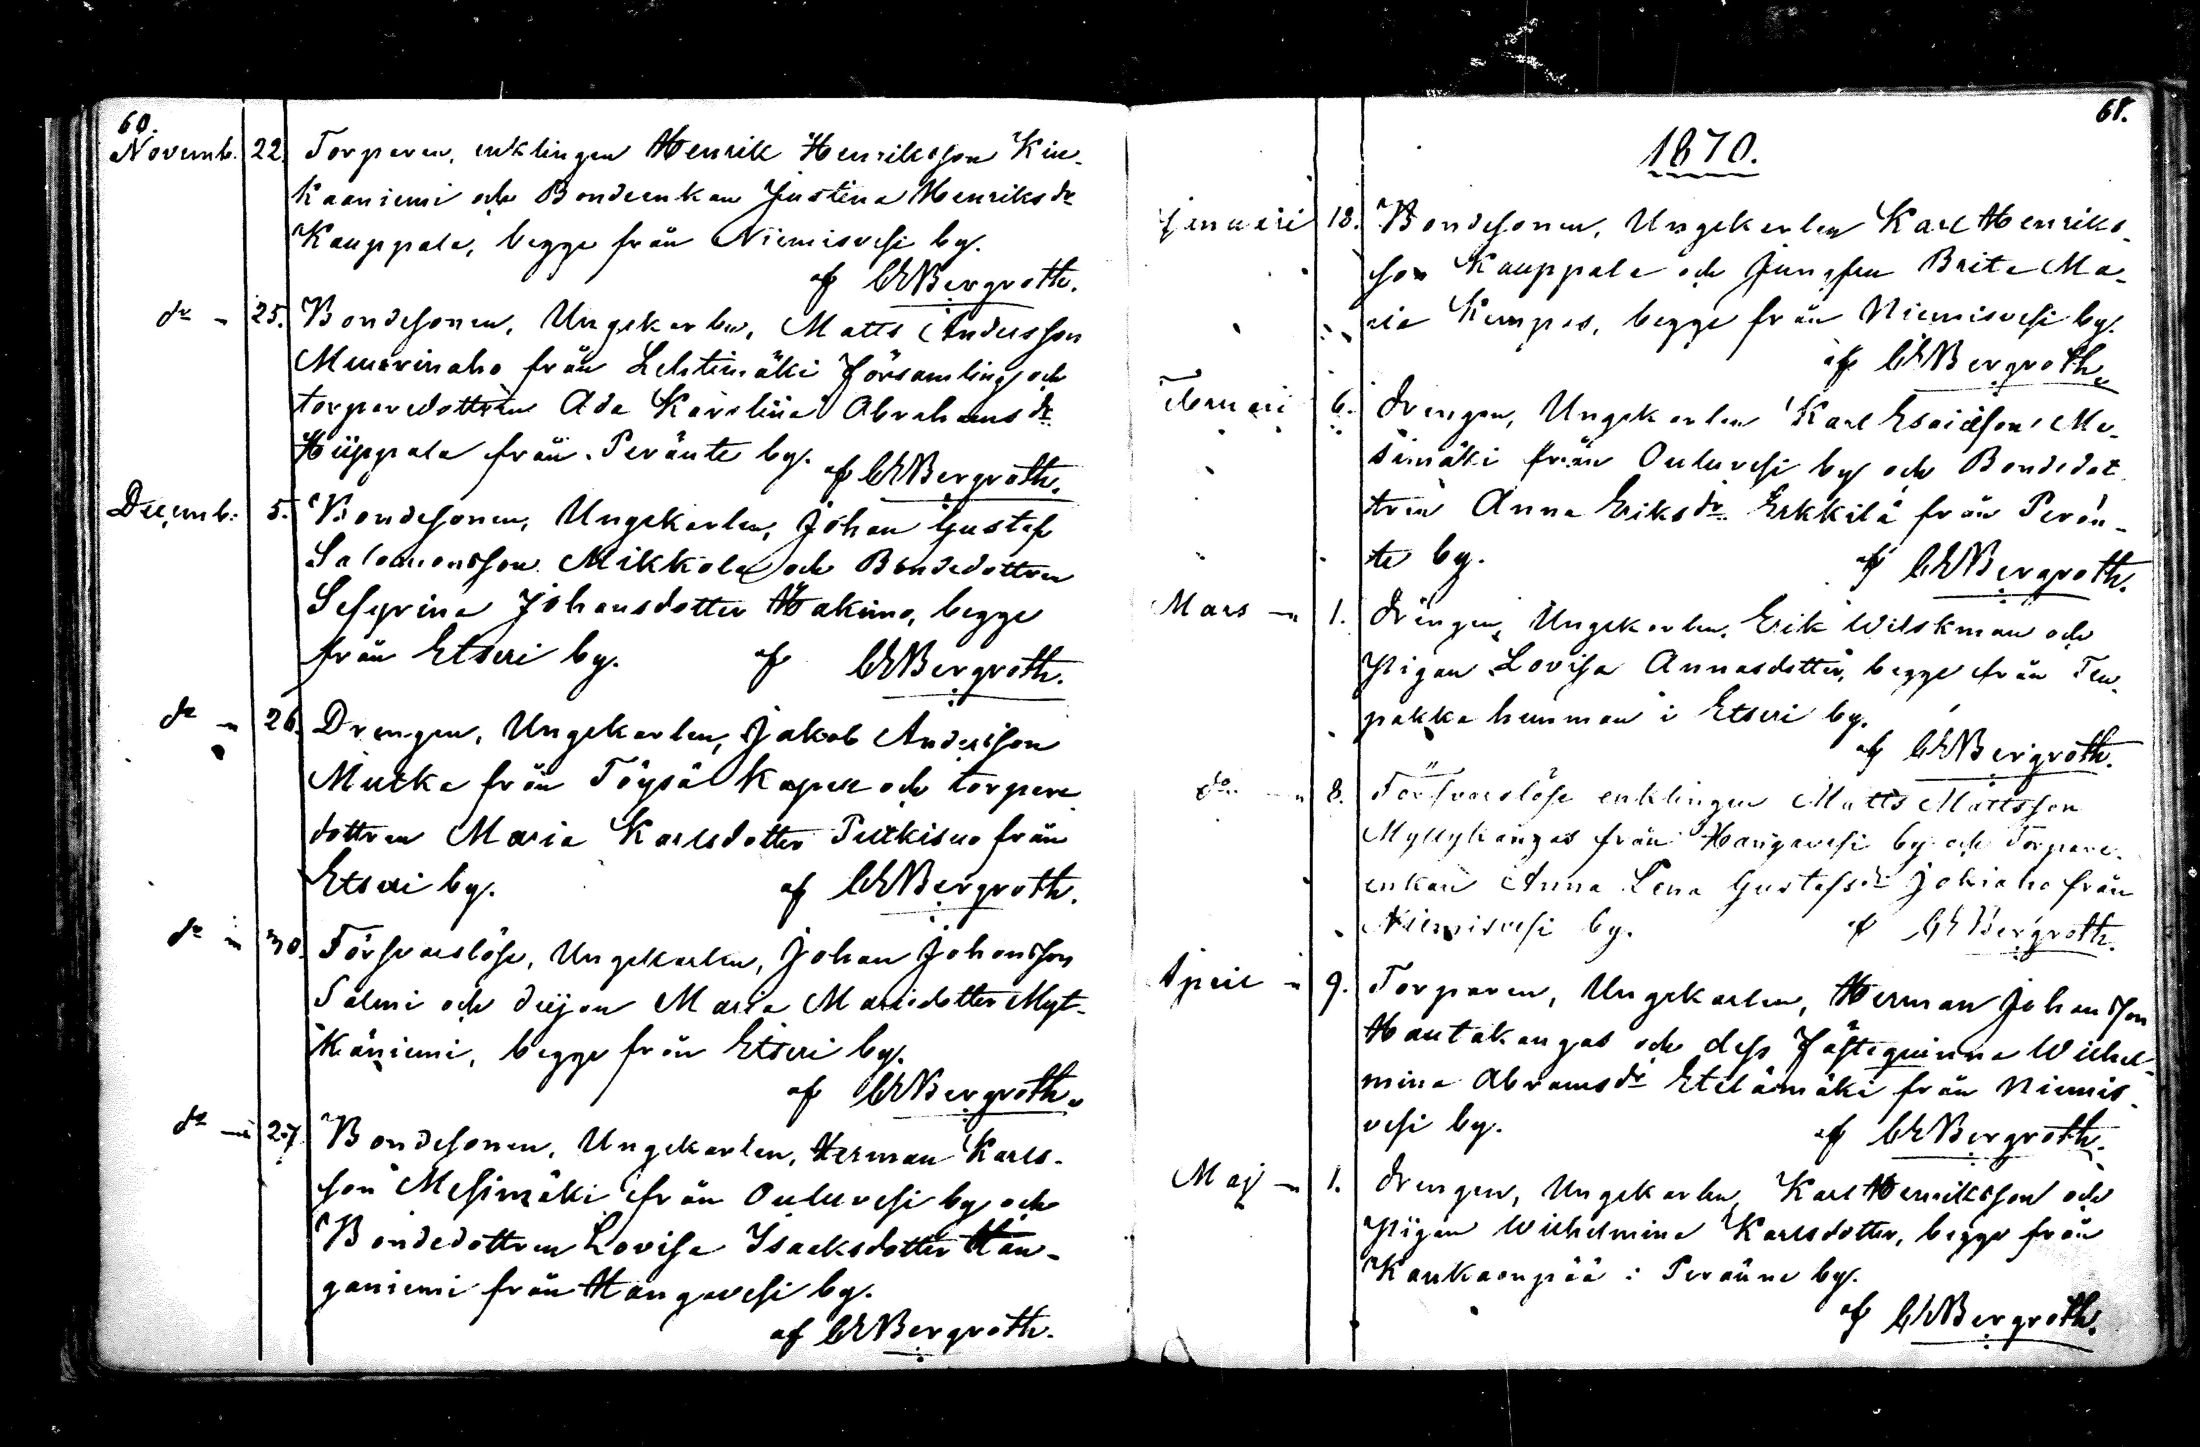 60.
Novemb. 22. Torparen, enklingen Henrik Henriksson Kin-
kaaniemi och Bondeenkan Justina Henriksdr
Kauppala, begge från Niemisvesi by.
af CEBergroth.
dr - 25. Bondesonen, Ungekarlen, Matts Andersson
Muurinaho från Lehtimäki Församling och
torparedottren Ada Karolina Abrahamsdr
Hüppala från Peränte by. af CEBergroth.
Decemb. 5. Bondesonen, Ungekarlen, Johan Gustaf
Salomonsson Mikkola och Bondedottren
Sefyrina Johansdotter Hakimo, begge
från Etseri by. af CEBergroth.
dr - 26. Drengen, Ungekarlen, Jakob Andersson
Mutka från Töysä Kapell och torpare
dottren Maria Karlsdotter Putkisuo från
Etseri by. af CEBergroth.
dr - 30. Försvarslöse, Ungekarlen, Johan Johansson
Salmi och Maria Mariedotter Myt-
käniemi, begge från Etseri by.
af CEBergroth.
dr - 27. Bondesonen, Ungekarlen, Herman Karls-
son Mesimäki från Ouluvesi by och
Bondedottren Lovisa Isaksdotter Han-
ganiemi från Hangavesi by.
af CEBergroth.
61.
1870.
Januari 18. Bondesonen, Ungekarlen Karl Henriks-
son Kauppala och Jungfru Brita Ma-
ria Kempas, begge från Niemisvesi by.
af CEBergroth.
Februari 6. Drengen, Ungekarlen Karl Esaiasson Me-
simäki från Ouluvesi by och Bondedot-
tren Anna Eriksdr. Erkkilä från Perän-
te by. af CEBergroth.
Mars - 1. Drengen, Ungekarlen, Erik Wilskman och
Pigan Lovisa Annasdotter, begge från
pakka hemman i Etseri by.
af CEBergroth.
do - 8. Försvarslöse enklingen Matts Mattsson
Myllykangas från Hangavesi by och Torpare-
enkan Anna Lena Gustafsdr Jokiaho från
Niemisvesi by. af CEBergroth.
April - 9. Torparen, Ungekarlen, Herman Johansson
Hautakangas och dess Fästeqvinna Wilhel-
mina Abramsdr Etelämäki från Niemis-
vesi by. af CEBergroth.
Maj - 1. Drengen, Ungekarlen, Karl Henriksson och
Pigan Wilhelmina Karlsdotter, begge från
Kaukaanpää i Peräne by.
af CEBergroth.